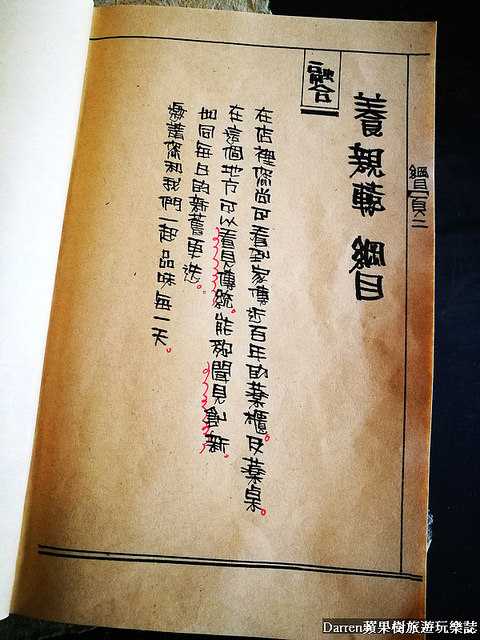 綱目頁二
養親 綱目
融合
在店裡您尚可看到家傳近百年的藥櫃。及藥桌。
在這個地方可以看見傳統。能夠聞見創新。
如同每日的新舊更迭。
邀請您和我們一起品味每一天。
Darren蘋果樹旅遊玩樂誌